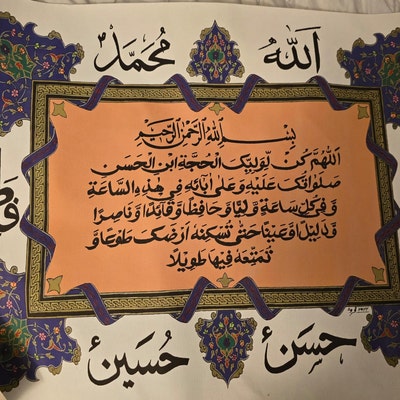 اَللّٰه
مُحَمَّد
بِسْمِ اللّٰهِ الرَّحْمٰنِ الرَّحِيْمِ
اَللّٰهُمَّ كُنْ لِوَلِيِّكَ الْحُجَّةِ ابْنِ الْحَسَنِ
صَلَوَاتُكَ عَلَيْهِ وَعَلٰى اٰبَائِهِ فِي هٰذِهِ السَّاعَةِ
وَفِي كُلِّ سَاعَةٍ وَلِيًّا وَحَافِظًا وَقَائِدًا وَنَاصِرًا
وَدَلِيْلًا وَعَيْنًا حَتّٰى تُسْكِنَهُ اَرْضَكَ طَوْعًا وَ
تُمَتِّعَهُ فِيْهَا طَوِيْلًا
حَسَن
حُسَيْن